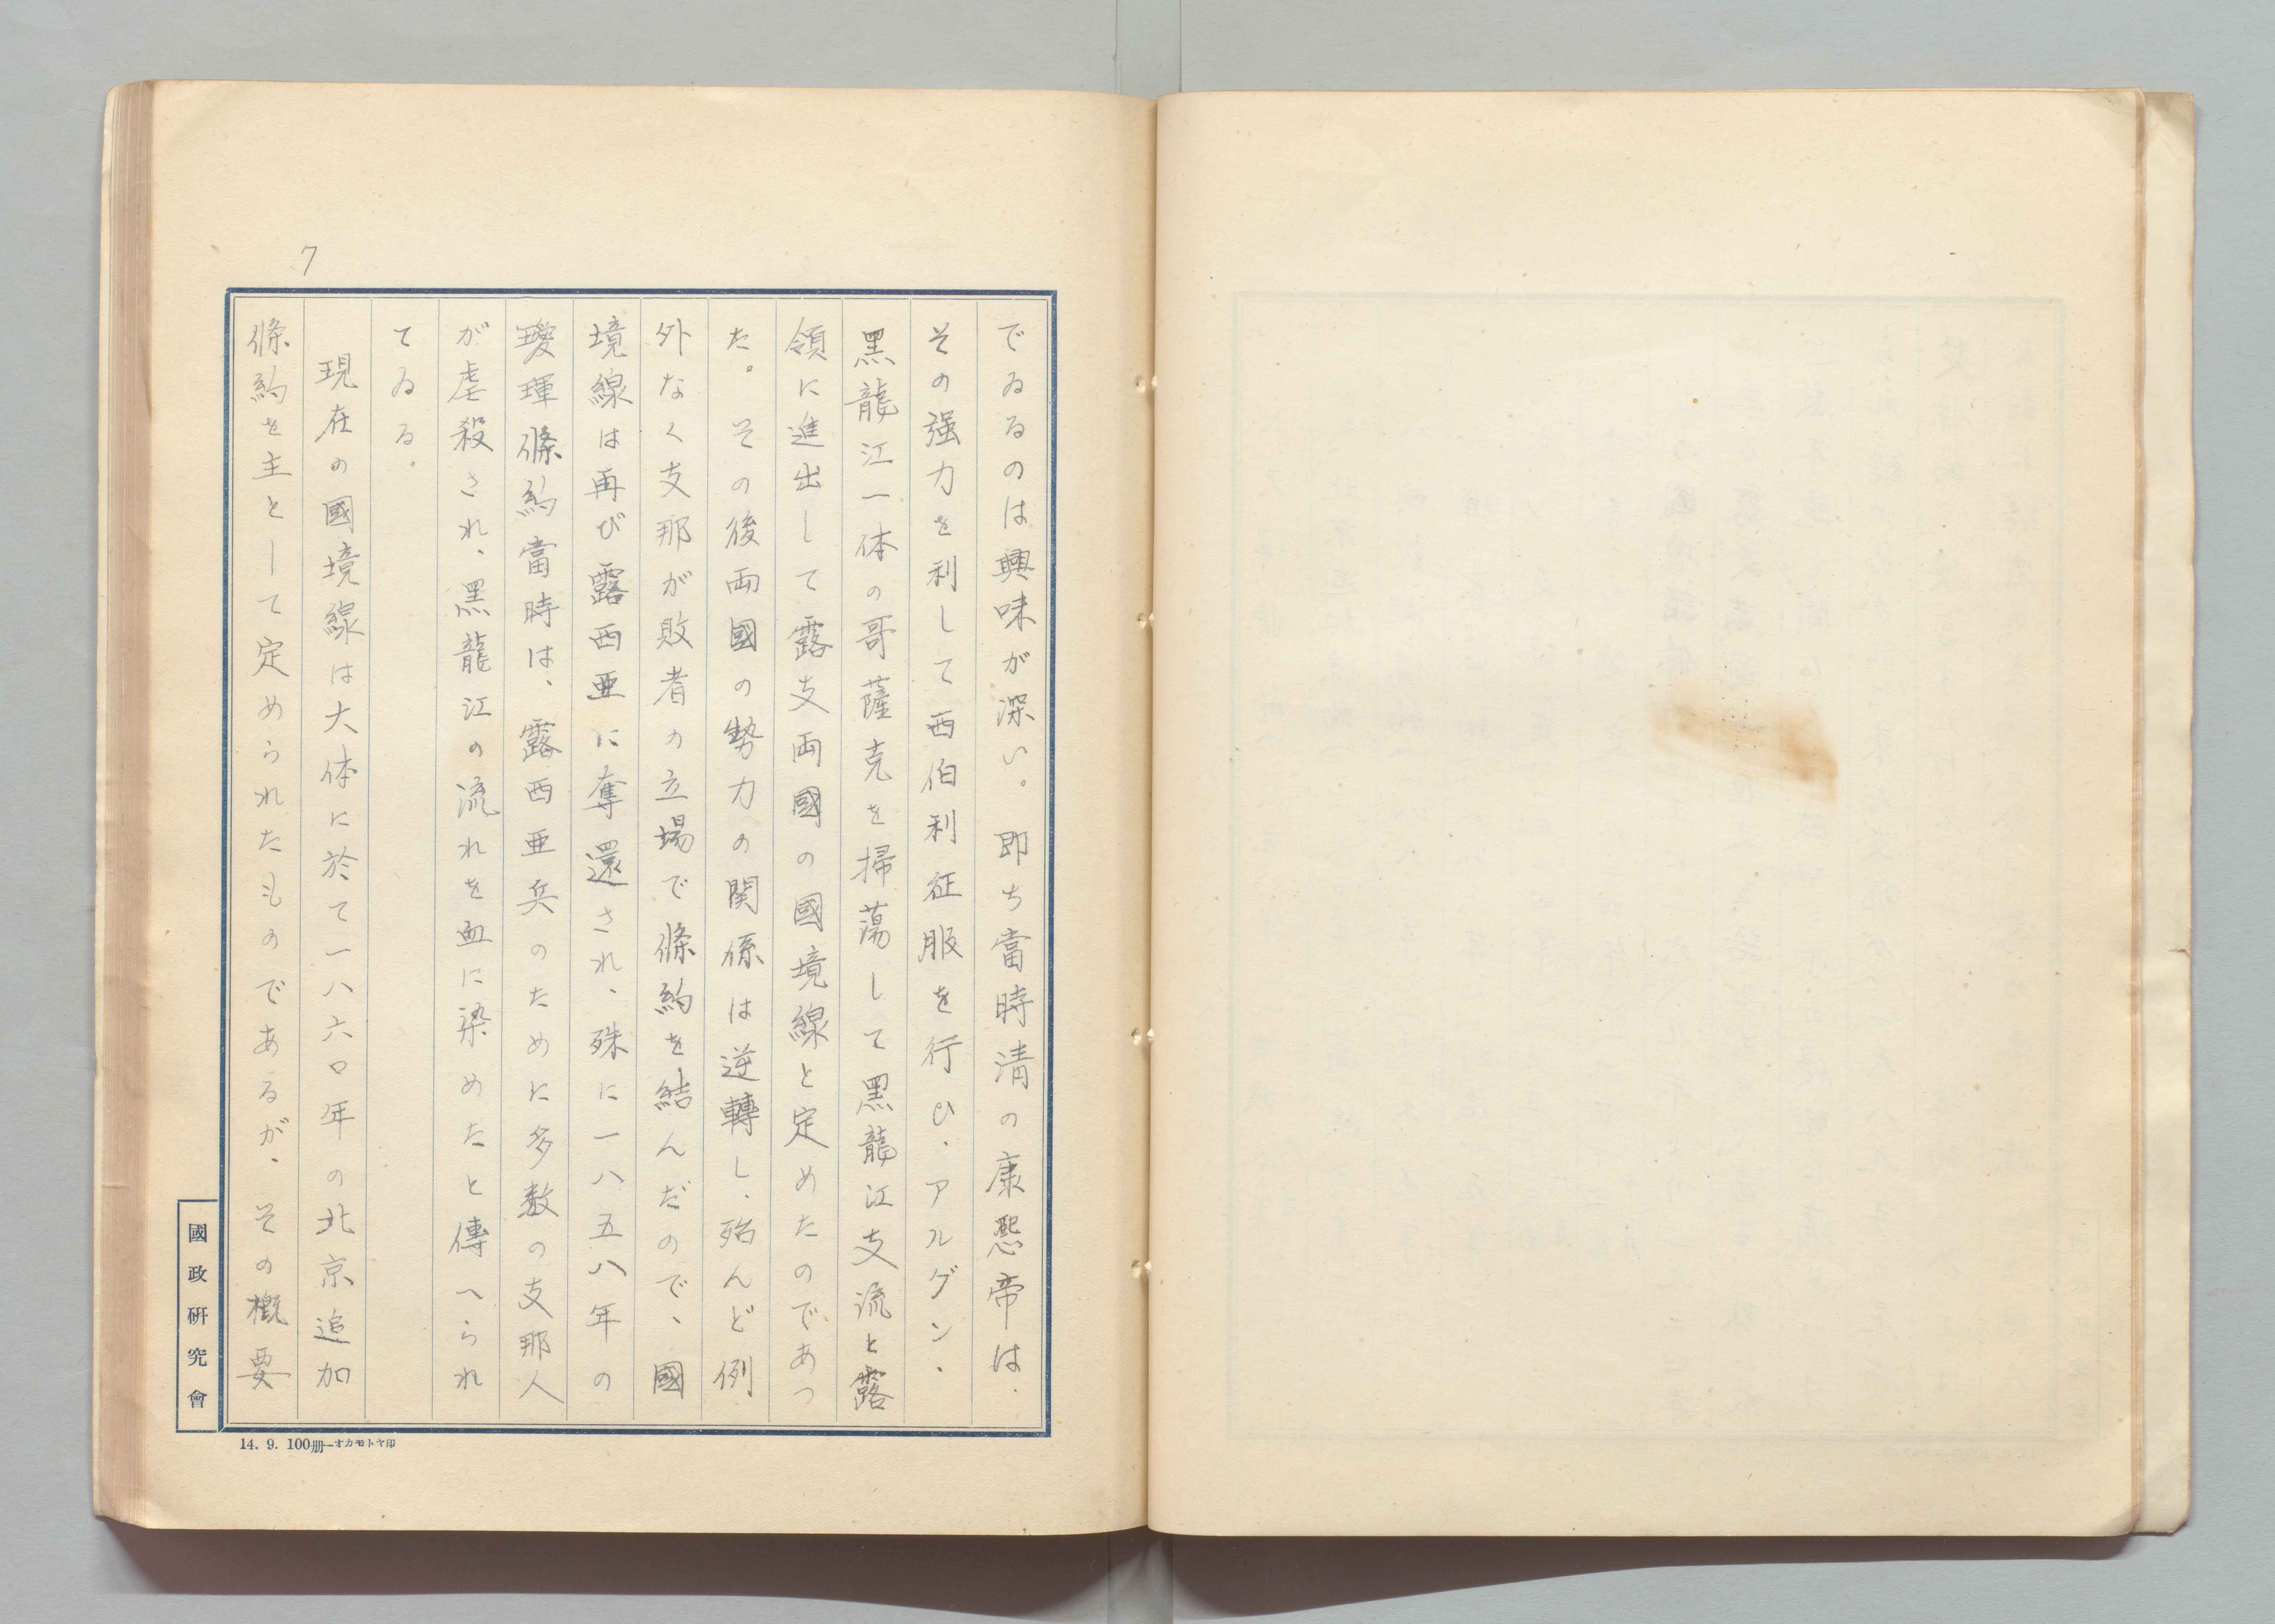 7
でゐるのは興味が深い。即ち當時清の康熙帝は、
その強力を利して西伯利征服を行ひ、アルグン、
黑龍江一体の哥薩克を掃蕩して黑龍江支流と露
領に進出して露支両國の國境線と定めたのであつ
た。その後両國の勢力の関係は逆轉し、殆んど例
外なく支那が敗者の立場で條約を結んだので、國
境線は再び露西亜に奪還され、殊に一八五八年の
璦琿條約當時は、露西亜兵のために多数の支那人
が虐殺され、黑龍江の流れを血に染めたと傳へられ
てゐる。
現在の國境線は大体に於て一八六〇年の北京追加
條約を主として定められたものであるが、その概要
國政硏究會
14. 9. 100册―オカモトヤ印